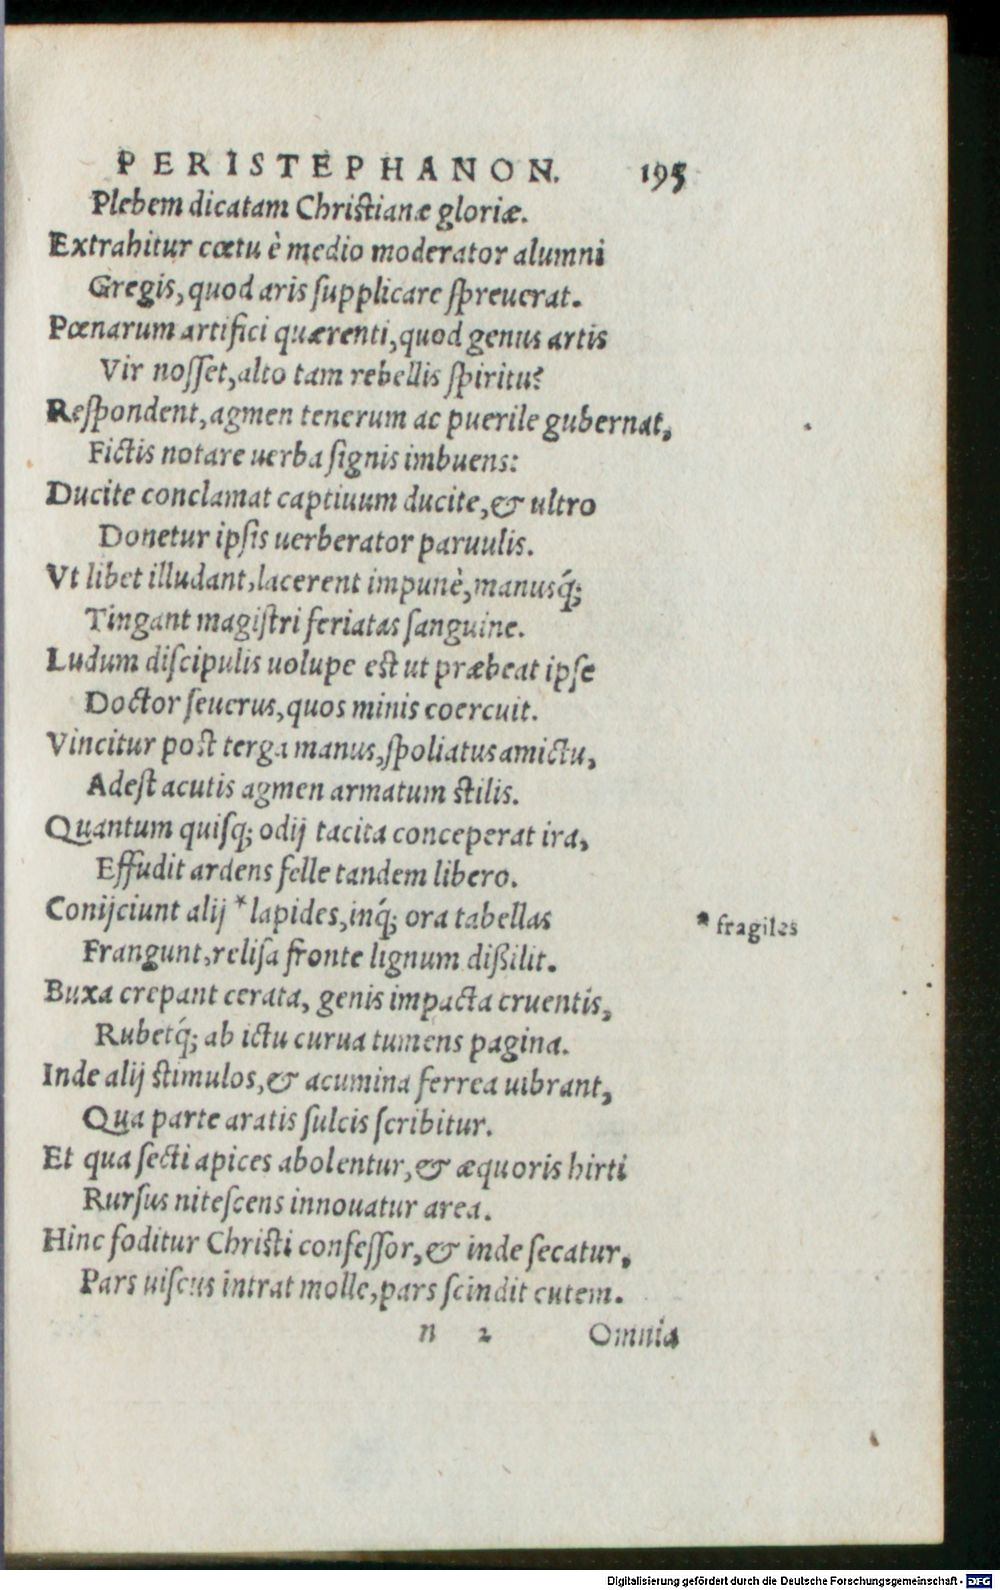 PERISTEPHANON. 195
Plebem dicatam Christianæ gloriæ.
Extrahitur cœtu è medio moderator alumni
Gregis, quod aris ſupplicare ſpreuerat.
Pœnarum artifici quærenti, quod genus artis
Vir noſſet, alto tam rebellis ſpiritu?
Reſpondent, agmen tenerum ac puerile gubernat,
Fictis notare uerba ſignis imbuens:
Ducite conclamat captiuum ducite, & ultro
Donetur ipſis uerberator paruulis.
Vt libet illudant, lacerent impunè, manusq́;
Tingant magiſtri feriatas ſanguine.
Ludum diſcipulis uolupe est ut præbeat ipſe
Doctor ſeuerus, quos minis coercuit.
Vincitur post terga manus, ſpoliatus amictu,
Adeſt acutis agmen armatum stilis.
Quantum quiſq; odij tacita conceperat ira,
Effudit ardens felle tandem libero.
Conijciunt alij * lapides, inq́; ora tabellas
* fragiles
Frangunt, reliſa fronte lignum dißilit.
Buxa crepant cerata, genis impacta cruentis,
Rubetq́; ab ictu curua tumens pagina.
Inde alij stimulos, & acumina ferrea uibrant,
Qua parte aratis ſulcis ſcribitur.
Et qua ſecti apices abolentur, & æquoris hirti
Rurſus niteſcens innouatur area.
Hinc foditur Christi confeſſor, & inde ſecatur,
Pars uiſcus intrat molle, pars ſcindit cutem.
n 2 Omnia
Digitalisierung gefördert durch die Deutsche Forschungsgemeinschaft - DFG